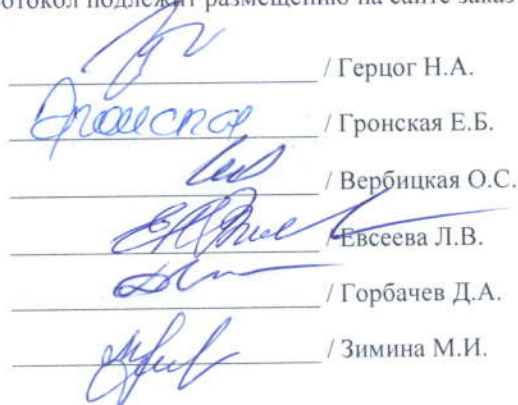 отокол подлежит размещению на сайте заказ
/ Герцог Н.А.
/ Гронская Е.Б.
/ Вербицкая О.С.
/ Евсеева Л.В.
/ Горбачев Д.А.
/ Зимина М.И.